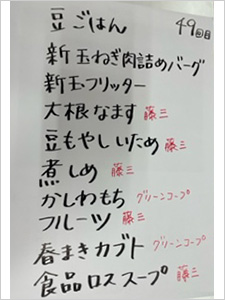 49回目
豆ごはん
新玉ねぎ肉詰めバーグ
新玉フリッター
大根なます 藤三
豆もやしいため 藤三
煮しめ 藤三
かしわもち グリーンコープ
フルーツ 藤三
春まきカブト グリーンコープ
食品ロススープ 藤三